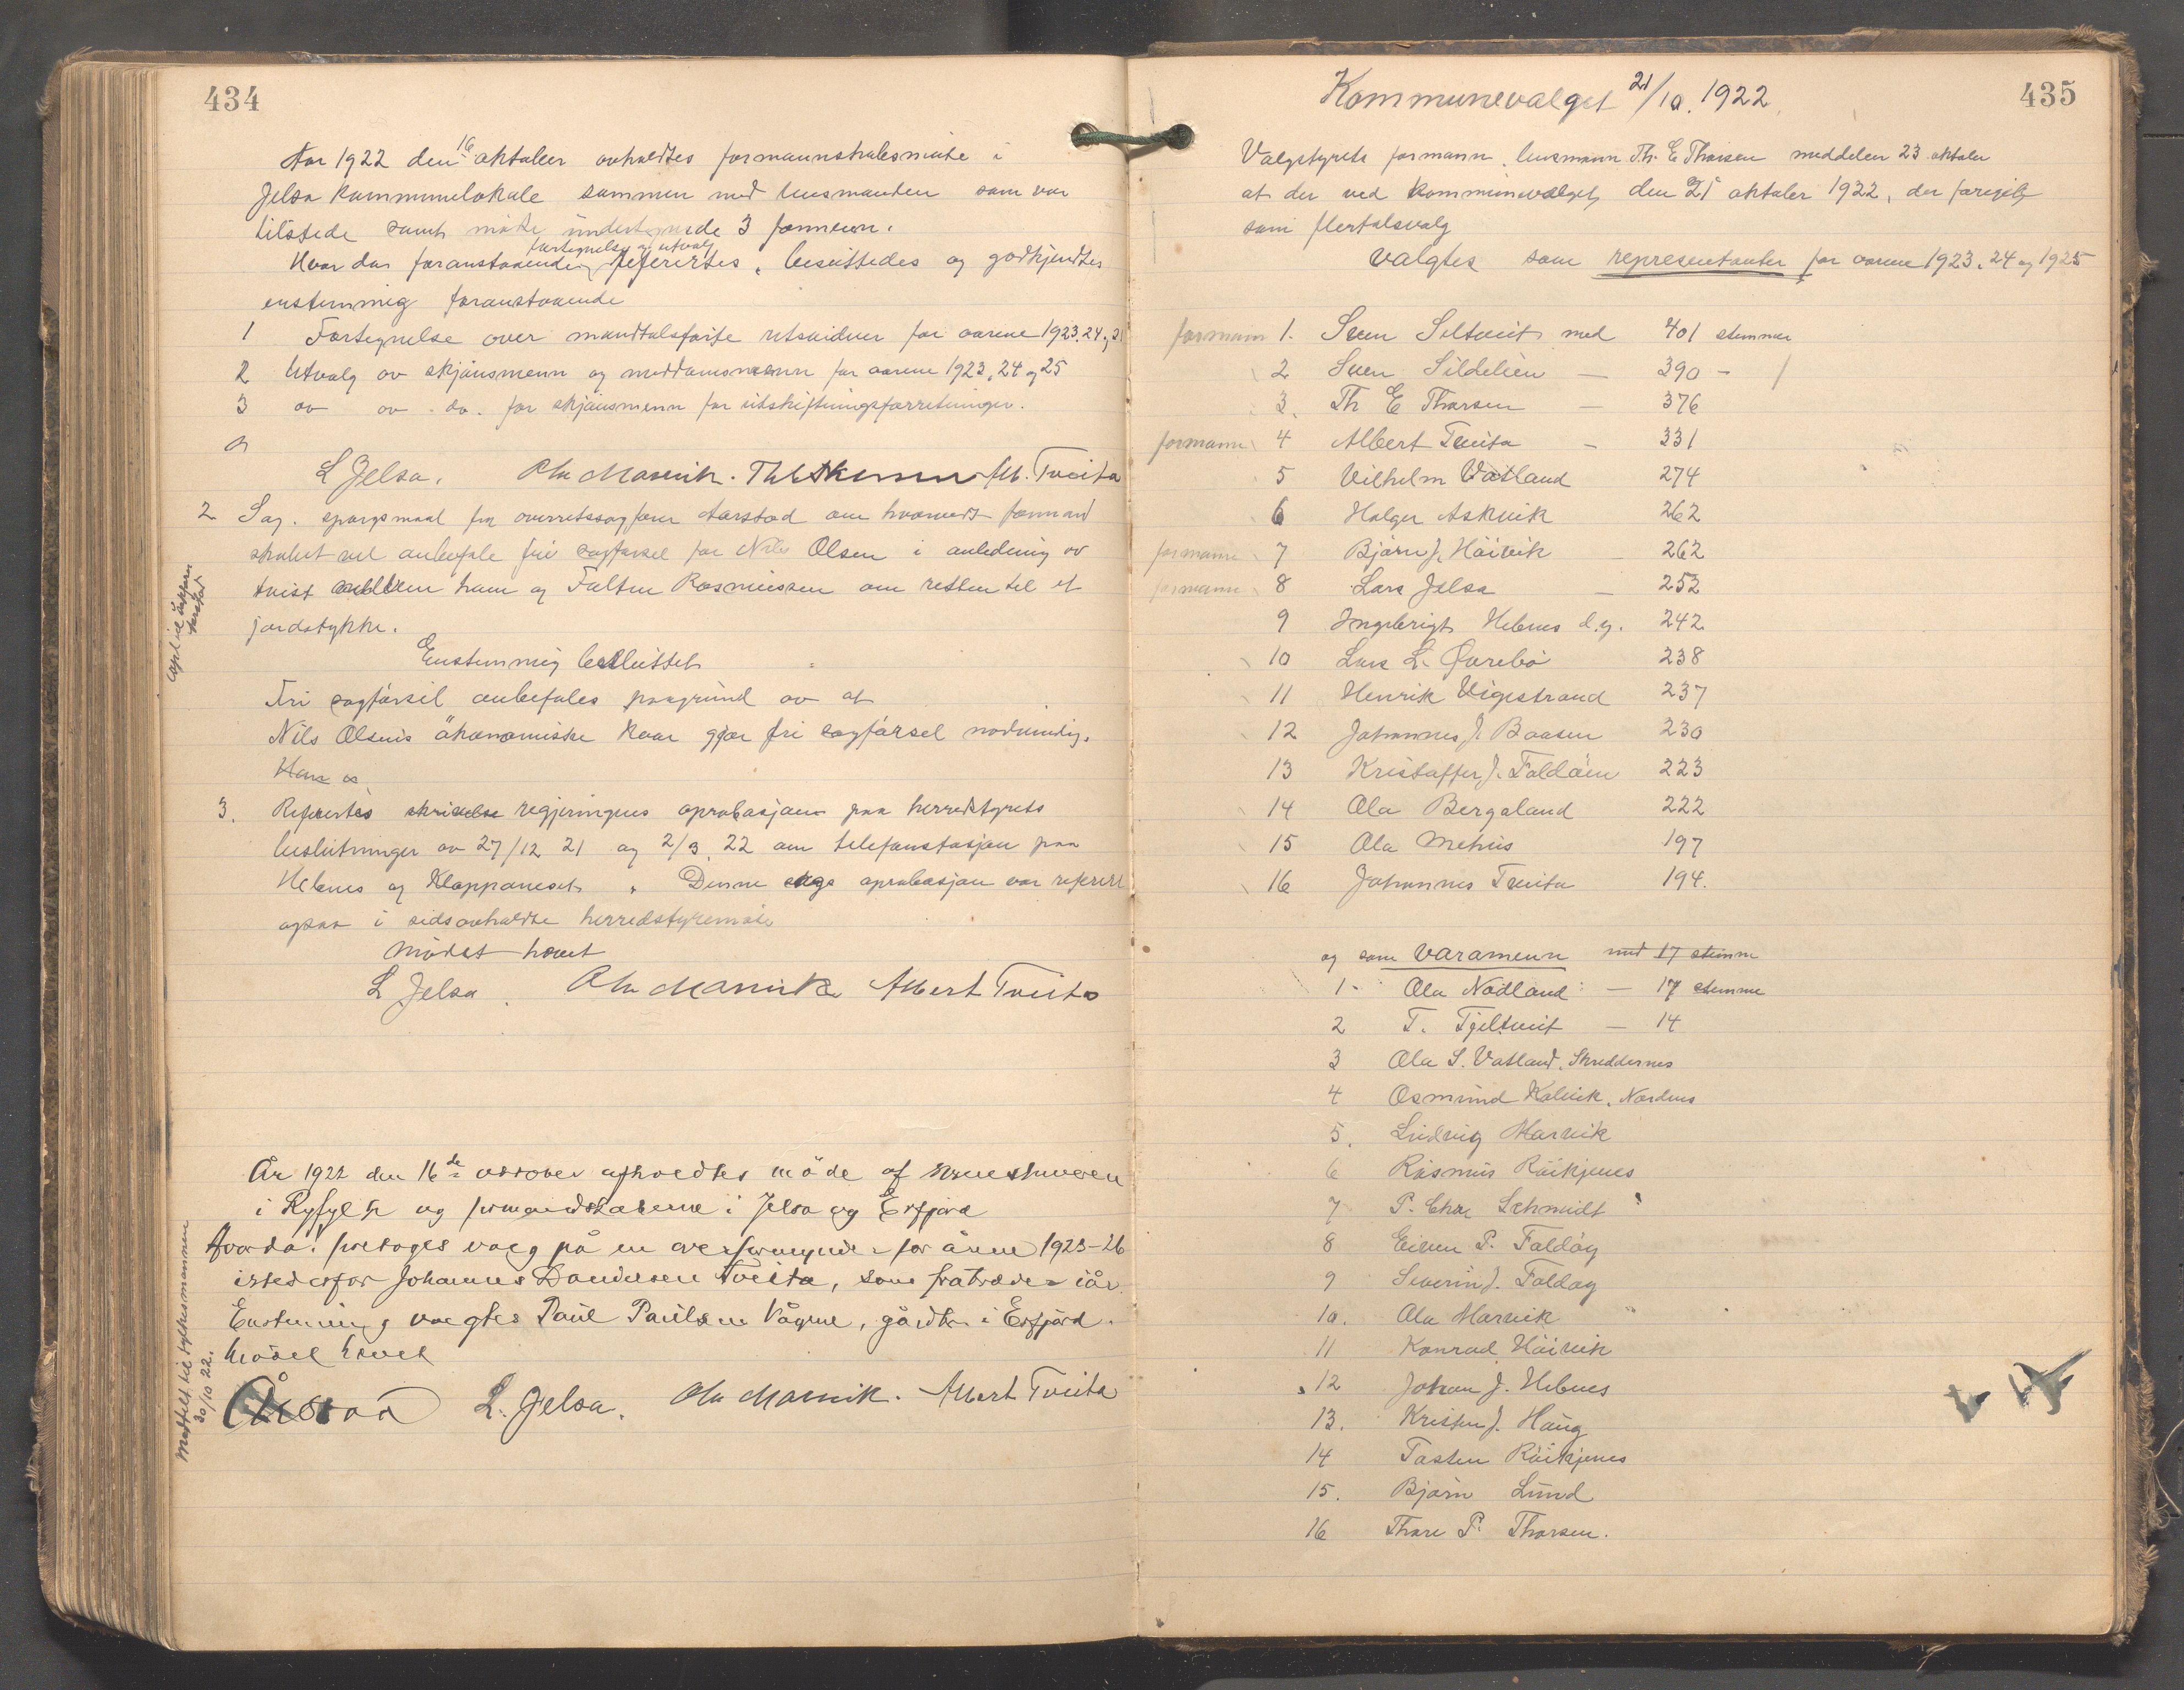 434
Aar 1922 den 16 oktober avholdtes formannskabsmöte i
Jelsa kommunelokale sammen med lensmanden som var
tilstede samt möte undertegnede 3 formenn.
fortegnelse og utvalg
Hvor da foranstaaende referertes, besluttedes og godkjendtes
enstemmig foranstaaende
1 Fortegnelse over mandtalsförte retsvidner for aarene 1923, 24 og 25
2 Utvalg av skjönsmenn og meddomsmenn for aarene 1923, 24 og 25
3 av av - do. for skjönsmenn for utskiftningsforretninger.
L Jelsa. Ola Marvik. Alb. Tveita
2 Sag. spörgsmaal fra overretssagförer Aarstad om hvorvidt formand
skabet vil anbefale fri sagförsel for Nils Olsen i anledning av
tvist mellem ham og Rasmussen om retten til et
jordstykke.
Enstemmig besluttet
Fri sagförsel anbefales paagrund av at
Nils Olsens ökonomiske kaar gjör fri sagförsel nødvendig.
Han
3. Refertes skrivelse regjeringens aprobasjon paa herredstyrets
beslutninger av 27/12 21 og 2/3 22 om telefonstasjon paa
Hebnes og Kloppaneset. Denne aprobasjon var referert
ogsaa i sidsavholdte herredstyremöte
Mödet hævet
L Jelsa. Ola Marvik Albert Tveita
År 1922 den 16de oktober afholdtes möde af
i Ryfylke og formandskaberne i Jelsa og Erfjord
Hvor da foretoges valg på en overformynder for årene 1923-26
istedenfor Johannes Tveita, som fratræder iår.
Enstemmig valgtes Paul Paulsen Vågene, gårdbr. i Erfjord.
Mödet hævet
L. Jelsa. Ola Marvik. Albert Tveita
Meddelt til fylkesmannen
30/10 22.
435
Kommunevalget 21/10. 1922
Valgstyrets formann, lensmann Th. E Thorsen meddeler 23 oktober
at der ved kommunevalget den 21 oktober 1922, der foregik
som flertalsvalg
valgtes som representanter for aarene 1923, 24 og 1925
formann 1. Sven Seltveit med 401 stemmer
2 Sven Sildelien — 390 -
3. Th E Thorsen — 376
formann 4 Albert Tveita - 331
5 Vilhelm Vatland 274
6 Holger Askvik 262
formann 7 Björn J. Höivik — 262
formann 8 Lars Jelsa — 252
9 Ingebrigt Hebnes d.y. 242
10 Lars L. Øvrebö 238
11 Henrik Vigestrand 237
12 Johannes J. Boasen 230
13 Kristoffer J. Foldöen 223
14 Ola Bergaland 222
15 Ola Mehus 197
16 Johannes Tveita 194.
og som varamenn med 17 stemme
1- Ola Nodland — 17 stemme
2 T. Tjeltveit — 14
3 Ola S. Vatland, Skreddernes
4 Osmund Kalvik, Nordnes
5. Ludvig Marvik
6 Rasmus Röikjenes
7 P. Chr Schmidt
8 Eivin P. Foldöy
9 Severin J. Foldöy
10. Ola Marvik
11 Konrad Höivik
12 Johan J. Hebnes
13. Kristen J. Haug
14 Tosten Röikjenes
15. Björn Lund
16 Thore P. Thorsen.